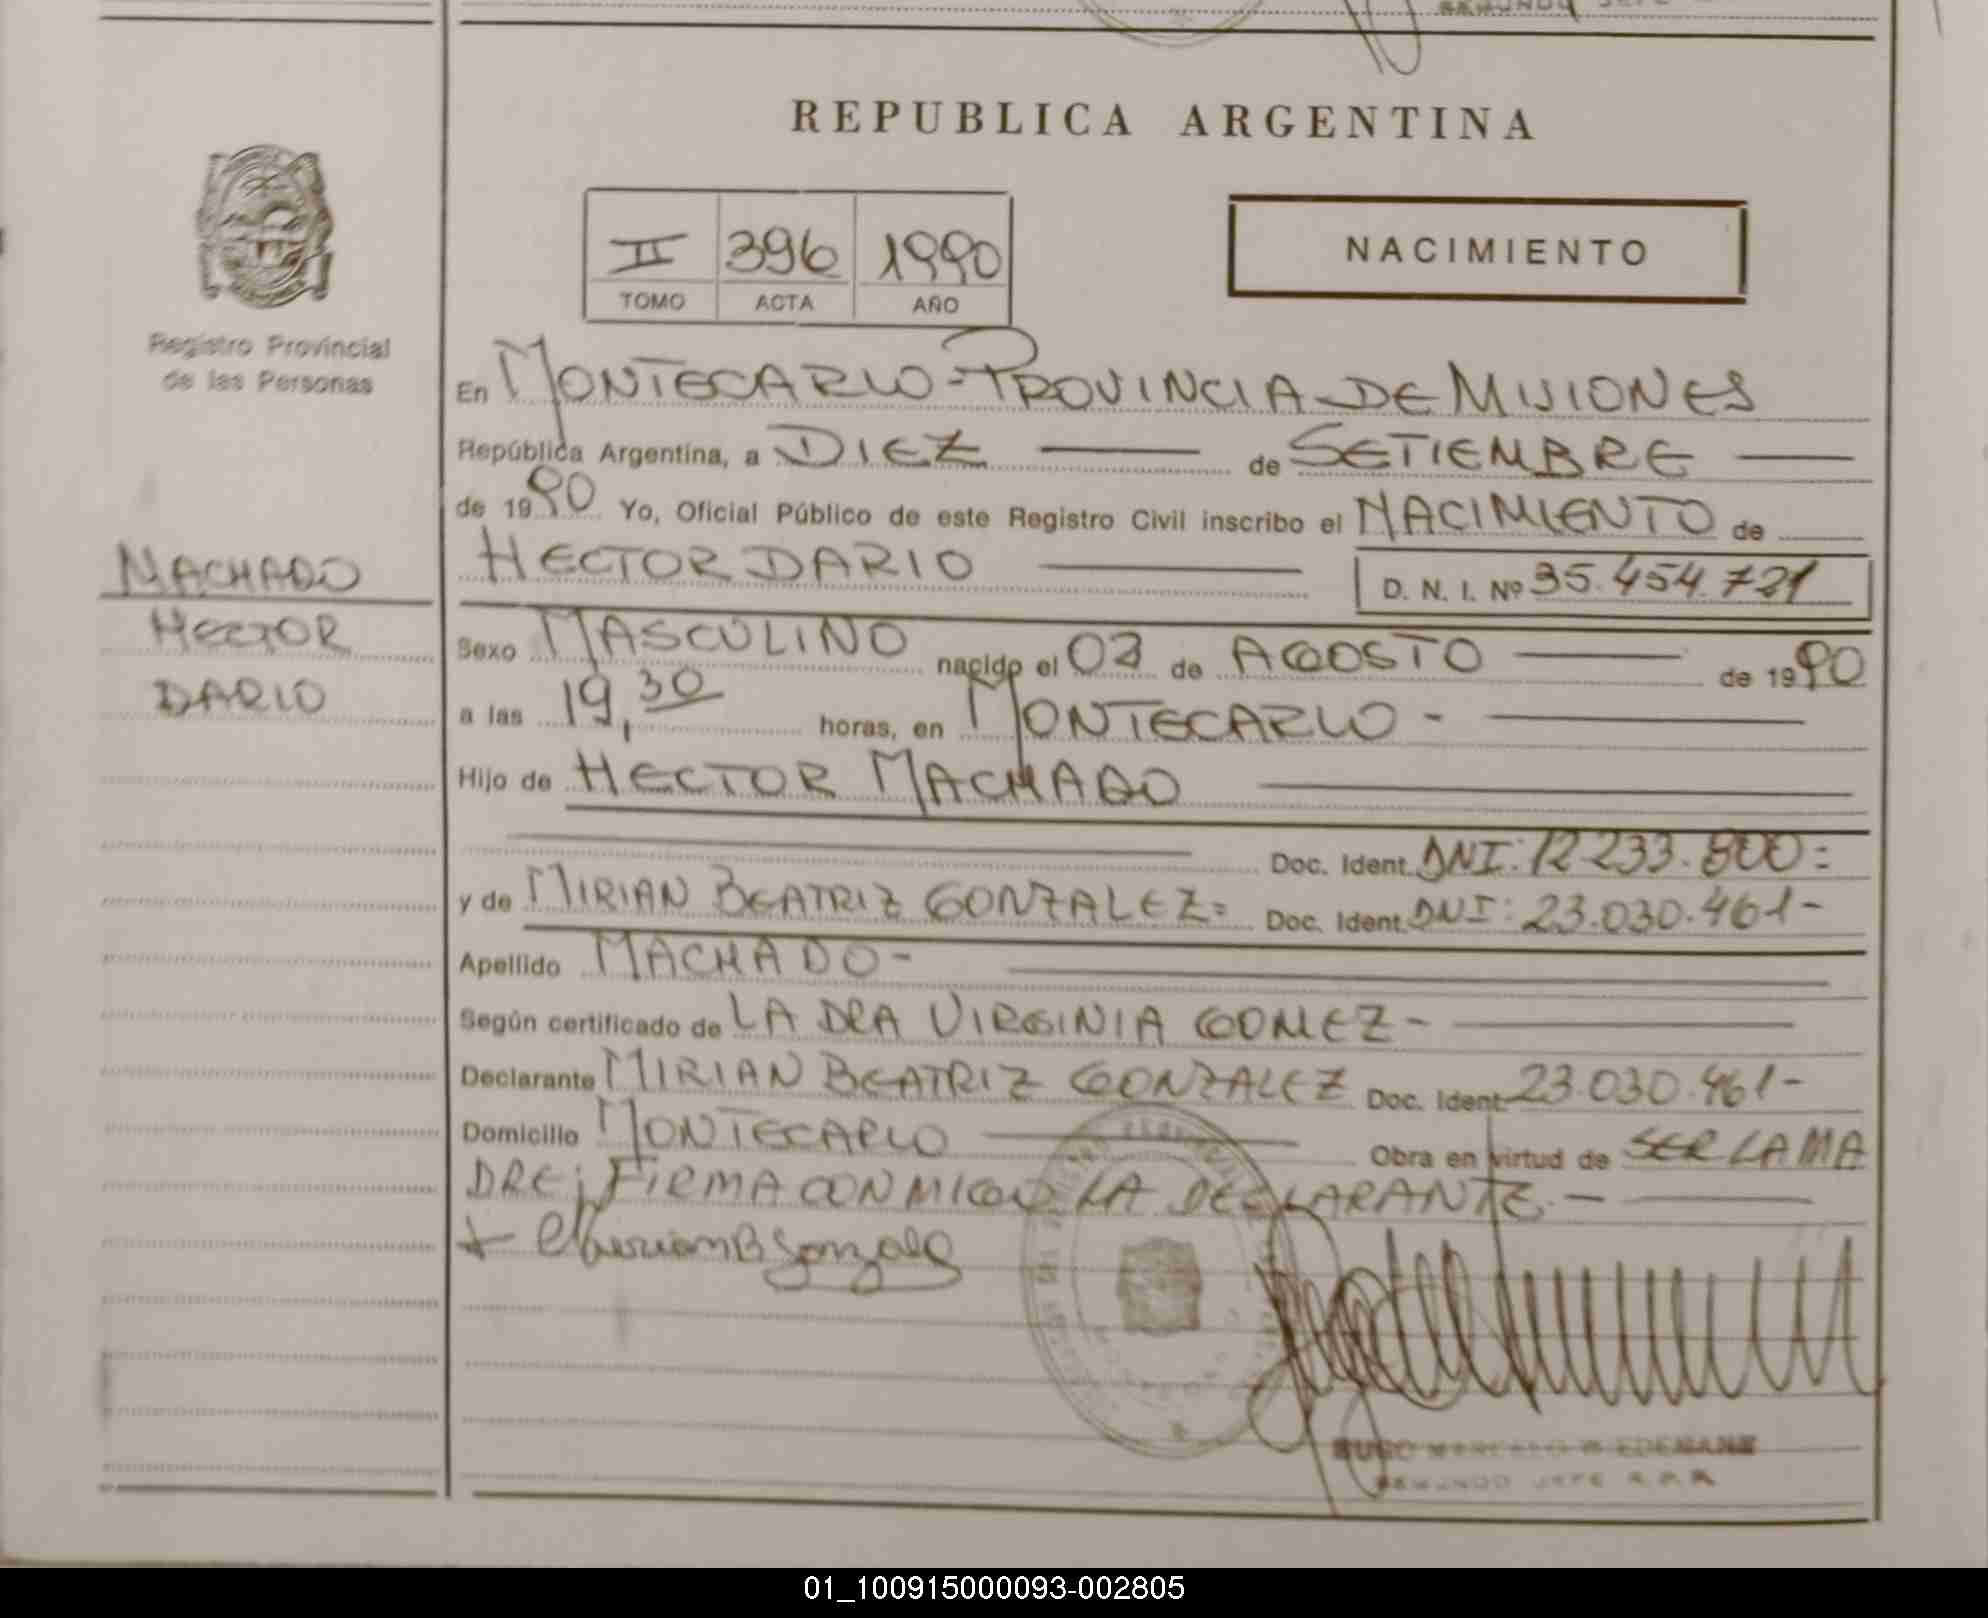 REPUBLICA ARGENTINA
II 396 1990
TOMO ACTA AÑO
NACIMIENTO
Registro Provincial
de las Personas
MACHADO
HECTOR
DARIO
En MONTECARLO - PROVINCIA DE MISIONES
República Argentina, a DIEZ de SETIEMBRE
de 1990 Yo, Oficial Público de este Registro Civil inscribo el NACIMIENTO de
HECTOR DARIO D. N. I. Nº 35.454.721
Sexo MASCULINO nacido el 03 de AGOSTO de 1990
a las 19,30 horas, en MONTECARLO -
Hijo de HECTOR MACHADO
Doc. Ident. DNI: 12.233.800 =
y de MIRIAN BEATRIZ GONZALEZ = Doc. Ident. DNI: 23.030.461 -
Apellido MACHADO -
Según certificado de LA DRA VIRGINIA GOMEZ -
Declarante MIRIAN BEATRIZ GONZALEZ Doc. Ident. 23.030.461 -
Domicilio MONTECARLO Obra en virtud de SER LA MA
DRE; FIRMA CONMIGO LA DECLARANTE. -
HUGO MARCELO WIEDEMANN
SEGUNDO JEFE R.P.P.
01_100915000093-002805